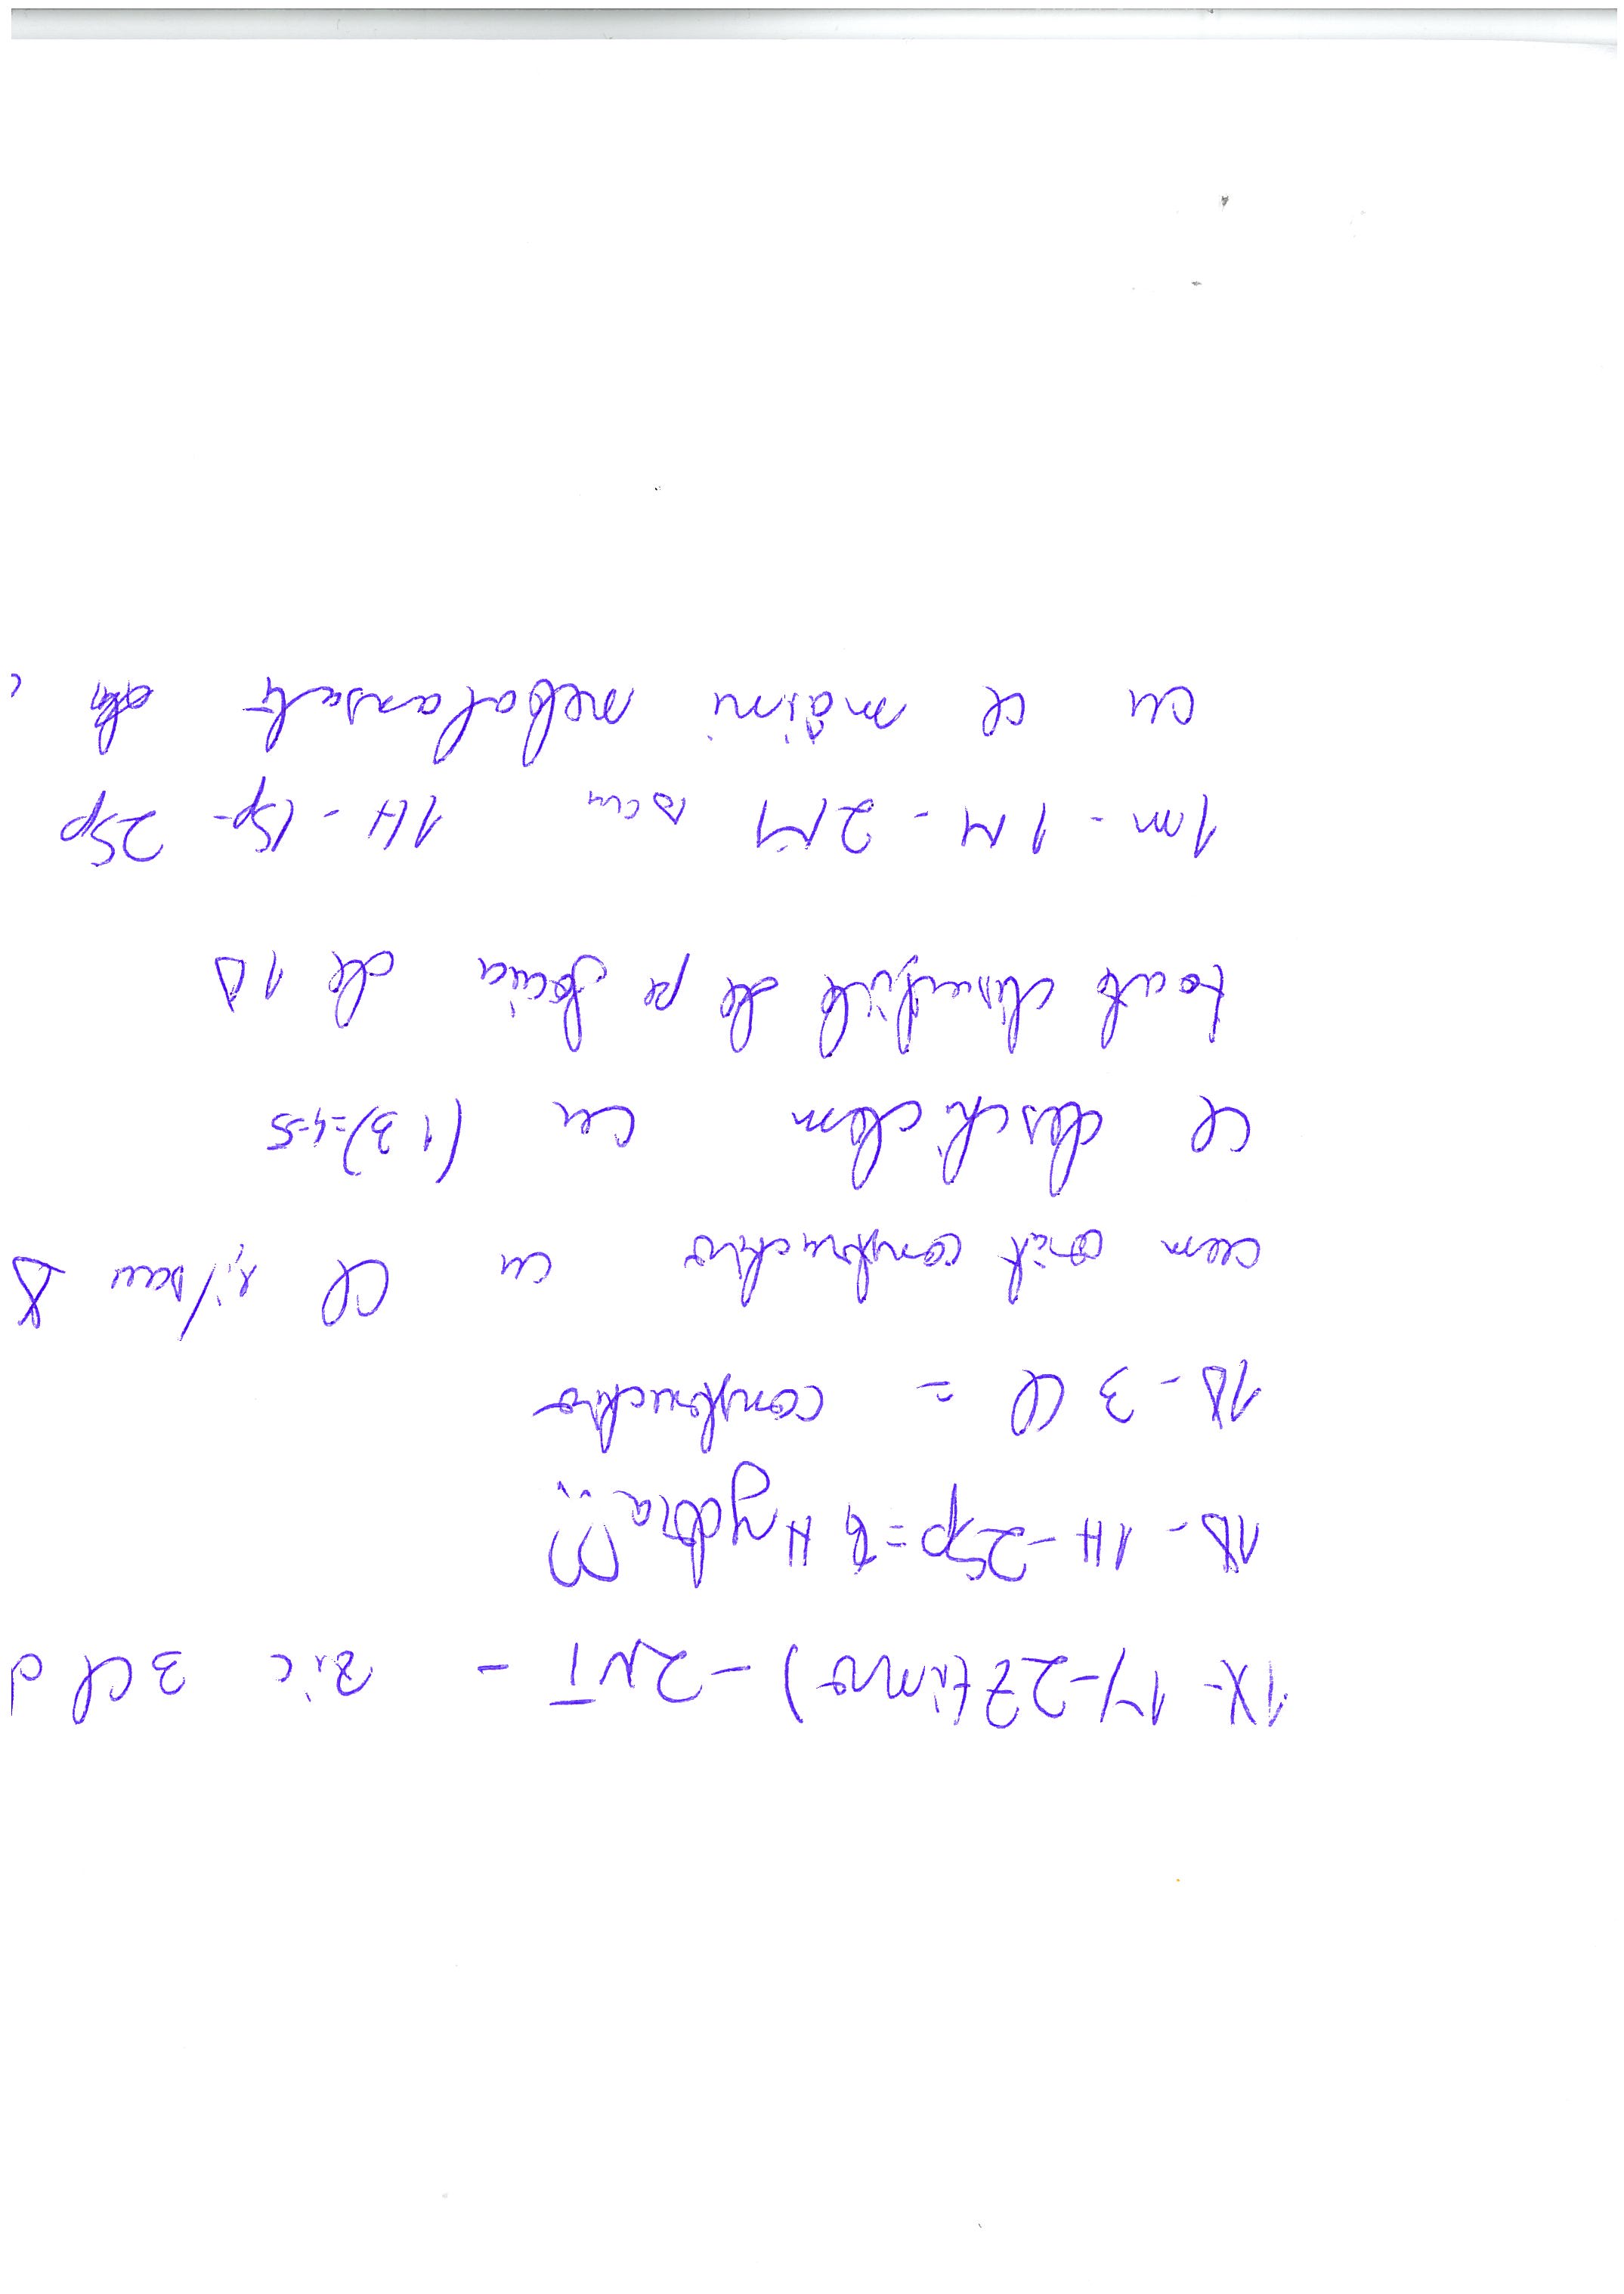 1X- 1Y-2Z(inv) - 2NT - zic 3Cl d
1D - 1H - 2Sp = Hydra??
1D - 3 Cl = constructiv
cum arăt constructiv cu Cl și/sau D
ce deschidem cu (13)=4-5
toate discuțiile de pe foaia de 1D
1m - 1M - 2M sau 1H - 1Sp - 2Sp
cu ce mâini nebalansate